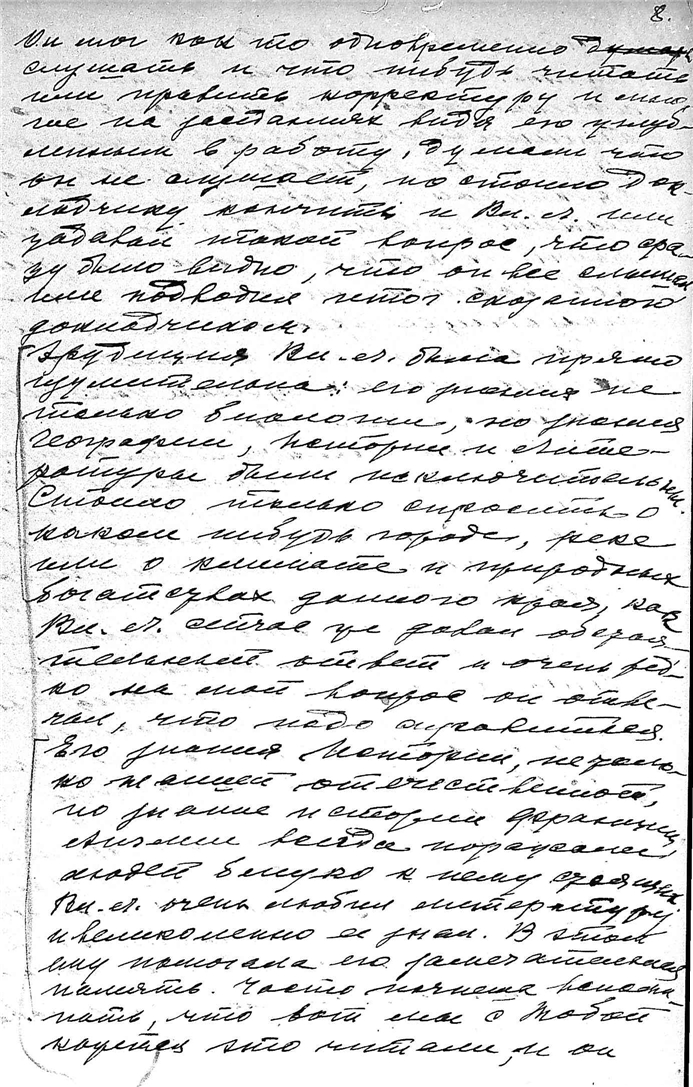 8.
Он мог как то одновременно думать
слушать и что нибудь читать
или править корректуру и мно-
гие на заседаниях видя его углуб-
ленным в работу, думали что
он не слушает, но стоило док-
ладчику кончить и Вл. Л. или
задавал такой вопрос, что сра-
зу было видно, что он все слышал
или подводил итог сказанного
докладчиком.
Эрудиция Вл. Л. была прямо
изумительна: его знания не
только биологии, но знания
Географии, Истории и Лите-
ратуры были исключительны.
Стоило только спросить о
каком нибудь городе, реке
или о климате и природных
богатствах данного края, как
Вл. Л. сейчас же давал обстоя-
тельный ответ и очень ред-
ко на мой вопрос он отве-
чал, что надо справиться.
Его знания Истории, не толь-
ко нашей отечественной,
но знание истории Франции,
Англии всегда поражали
людей близко к нему стоящих
Вл. Л. очень любил литературу
и великолепно ее знал. В этом
ему помогала его замечательная
память. Часто начнешь вспоми-
нать, что вот мы с Тобой
кажется это читали, и он